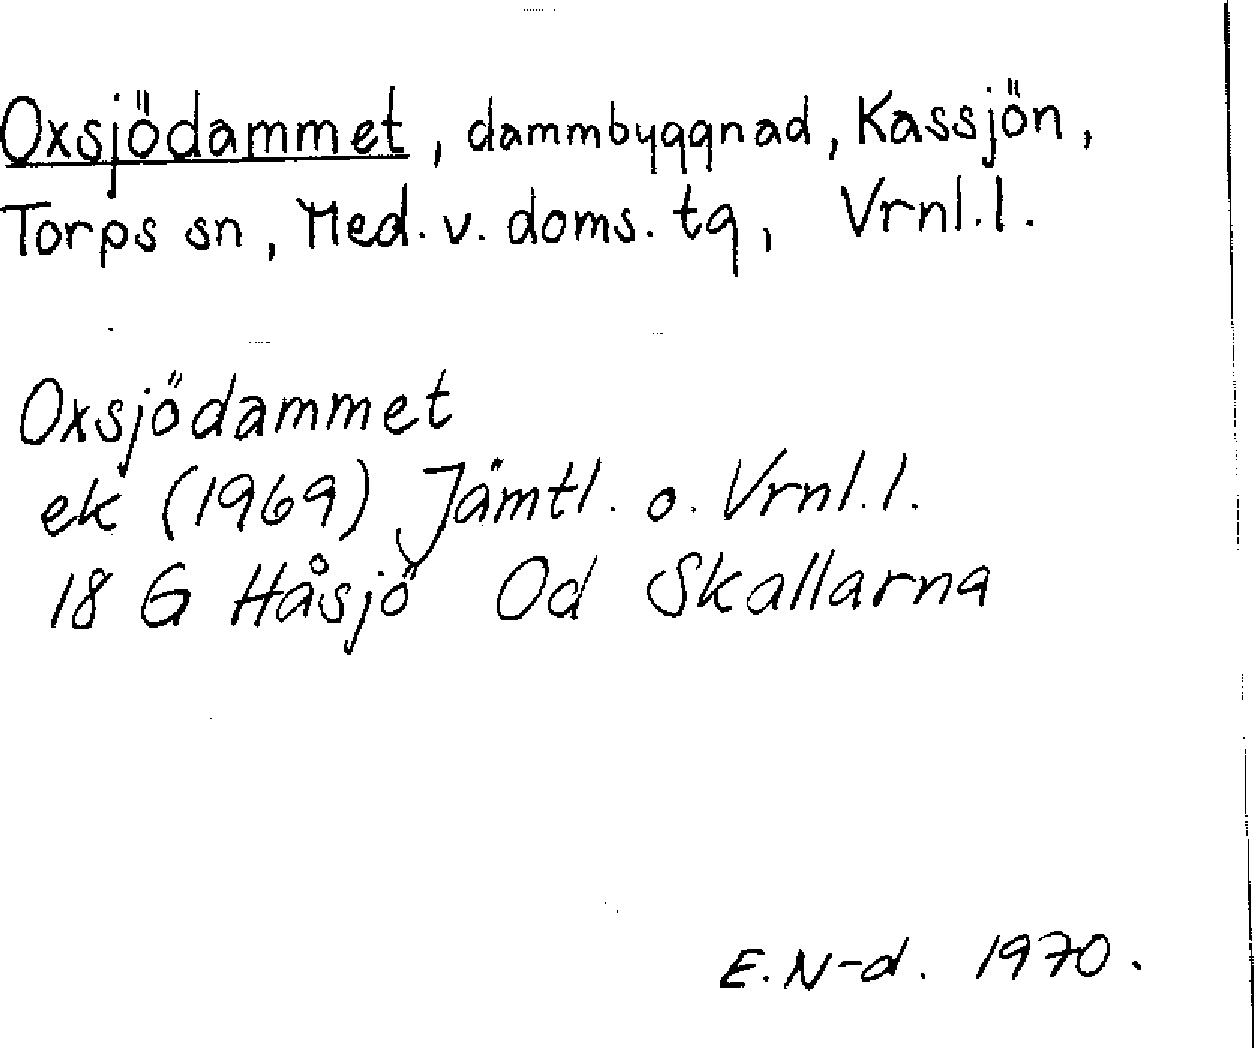 Oxsjödammet, dammbyggnad, Kassjön,
Torps sn, Med. v. doms. tg, Vrnl.l.
Oxsjödammet
ek (1969) Jämtl. o. Vrnl.l.
18 G Håsjö Od Skallarna
E.N-d. 1970.